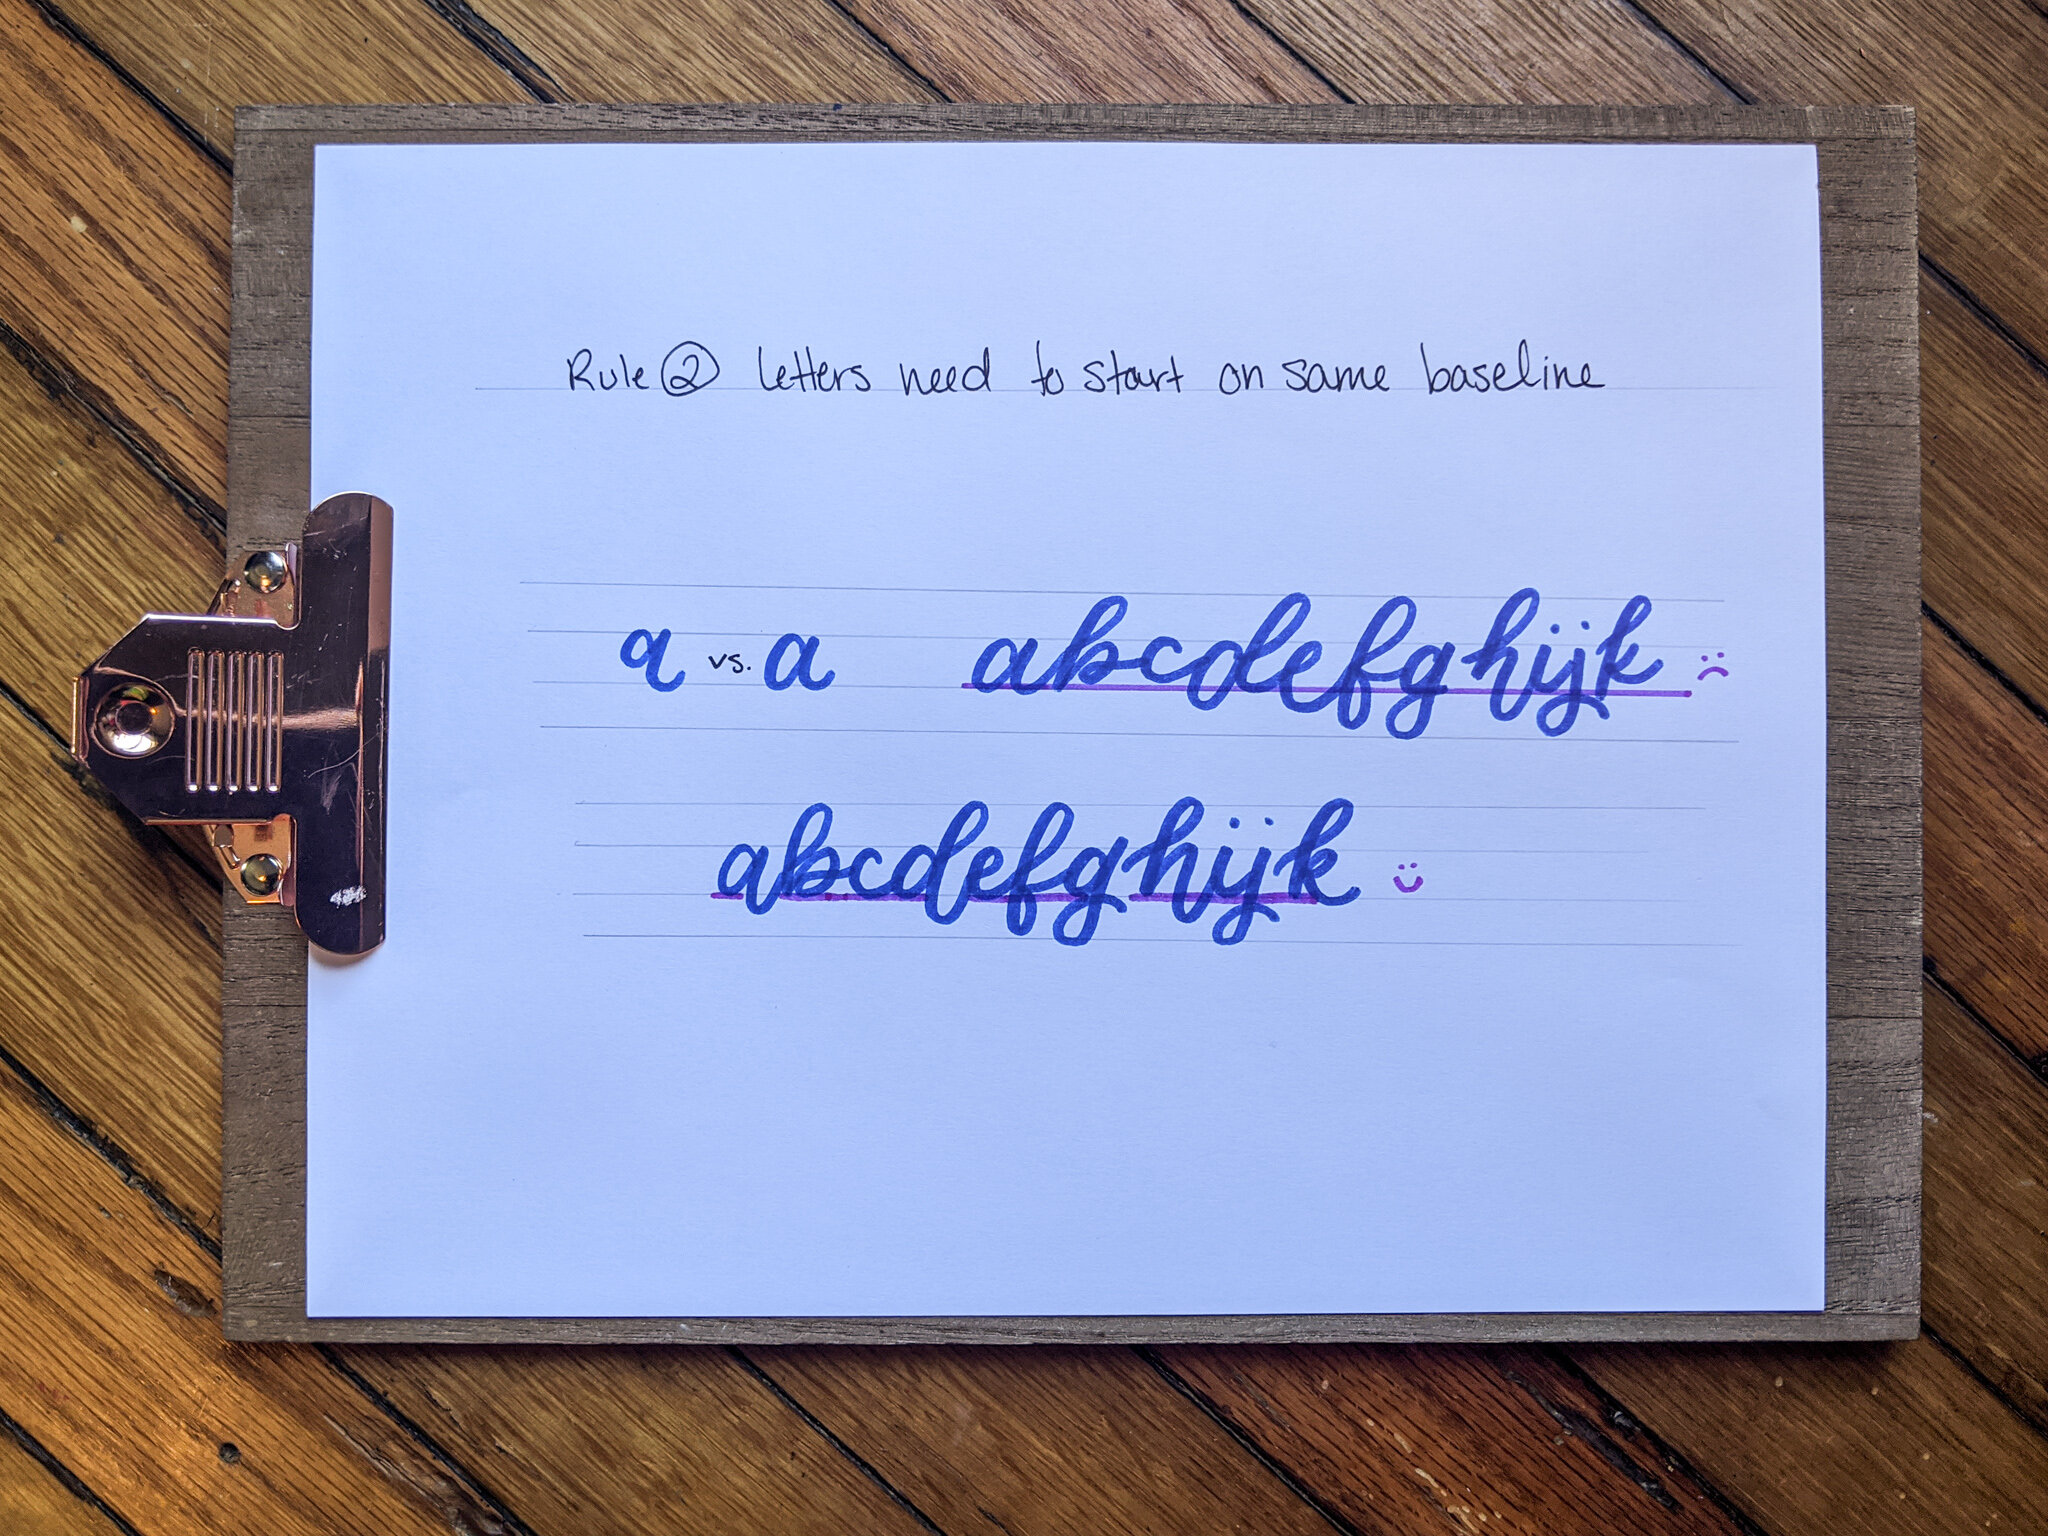 Rule ② letters need to start on same baseline
a vs. a abcdefghijk
abcdefghijk